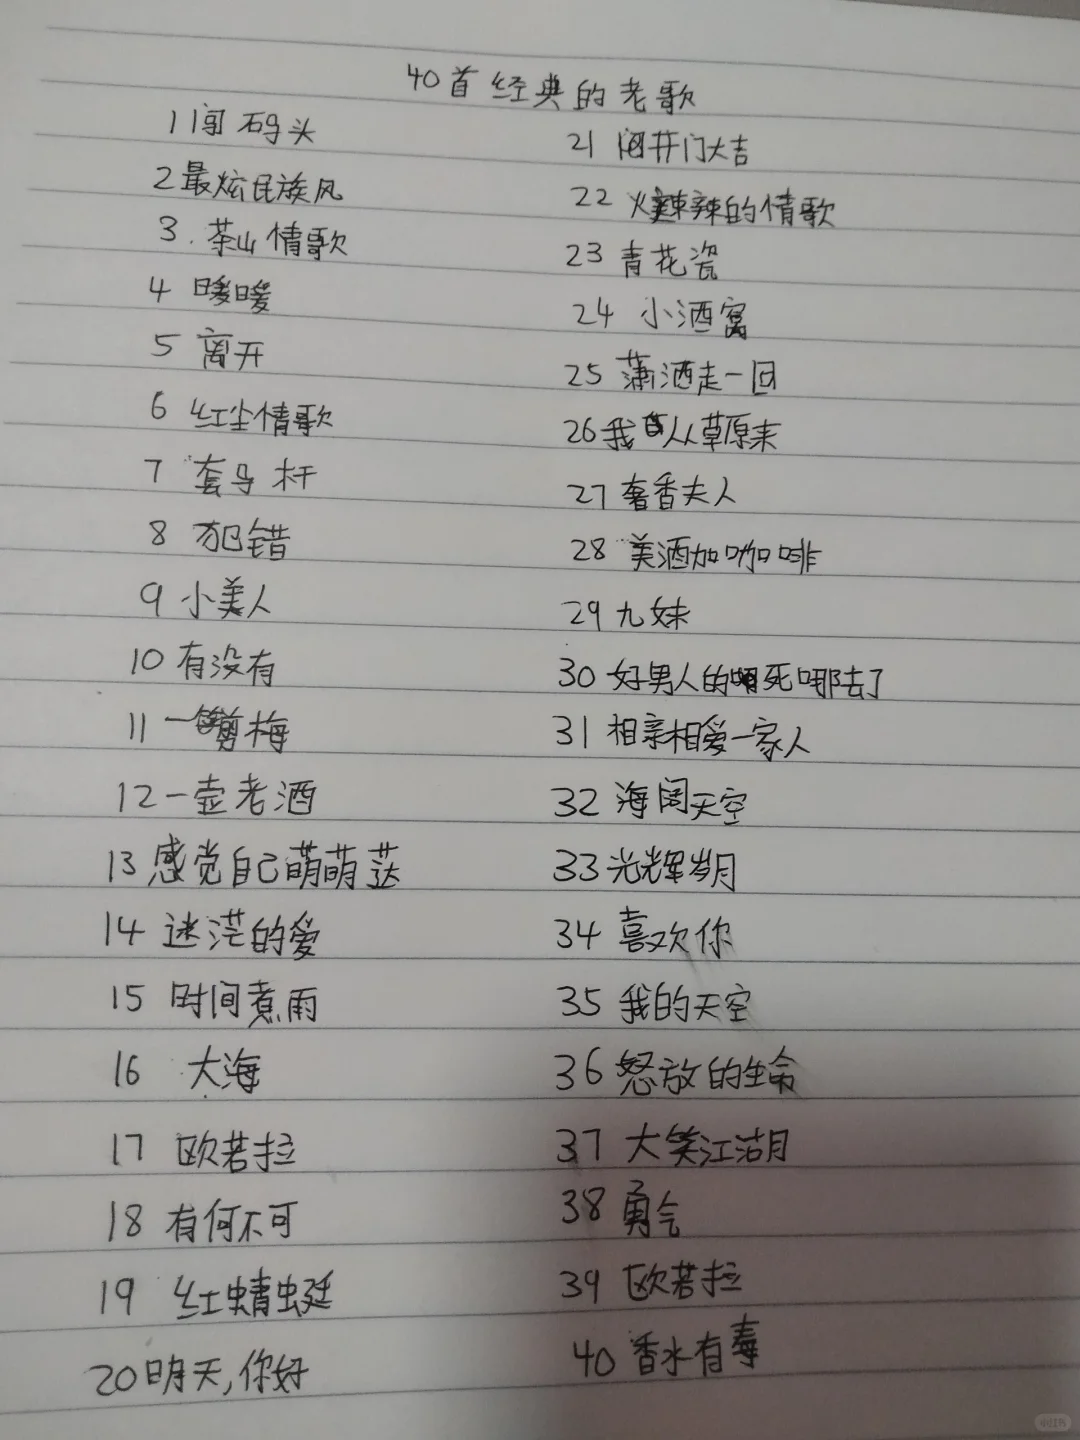 40首经典的老歌
1 闯码头
2 最炫民族风
3. 茶山情歌
4 暖暖
5 离开
6 红尘情歌
7 套马杆
8 犯错
9 小美人
10 有没有
11 一剪梅
12 一壶老酒
13 感觉自己萌萌荙
14 迷茫的爱
15 时间煮雨
16 大海
17 欧若拉
18 有何不可
19 红蜻蜓
20 明天,你好
21 开门大吉
22 火辣辣的情歌
23 青花瓷
24 小酒窝
25 潇洒走一回
26 我从草原来
27 奢香夫人
28 美酒加咖啡
29 九妹
30 好男人的死哪去了
31 相亲相爱一家人
32 海阔天空
33 光辉岁月
34 喜欢你
35 我的天空
36 怒放的生命
37 大笑江湖
38 勇气
39 欧若拉
40 香水有毒